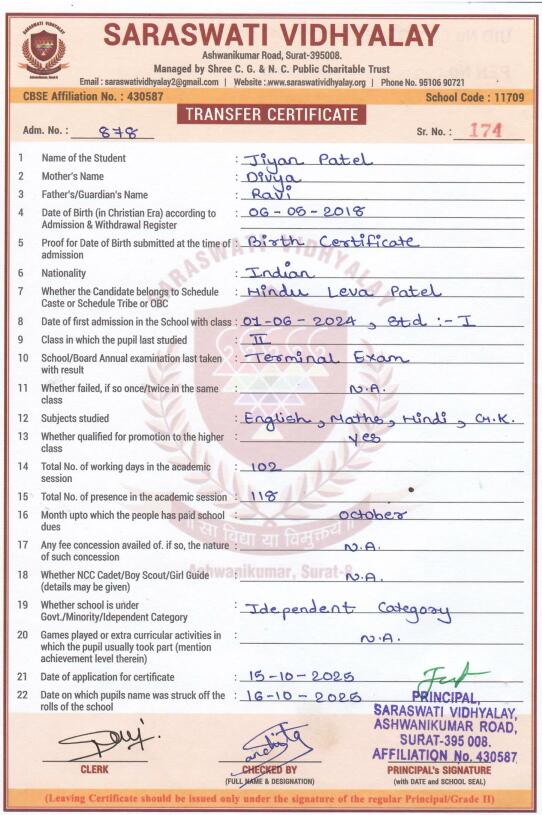 SARASWATI VIDHYALAY
Ashwanikumar Road, Surat-395008.
Managed by Shree C. G. & N. C. Public Charitable Trust
Email : saraswatividhyalay2@gmail.com | Website : www.saraswatividhyalay.org | Phone No. 95106 90721
CBSE Affiliation No. : 430587 School Code : 11709
TRANSFER CERTIFICATE
Adm. No. : 878 Sr. No. : 174
1 Name of the Student : Jiyan Patel
2 Mother's Name : Divya
3 Father's/Guardian's Name : Ravi
4 Date of Birth (in Christian Era) according to : 06-05-2018
Admission & Withdrawal Register
5 Proof for Date of Birth submitted at the time of : Birth Certificate
admission
6 Nationality : Indian
7 Whether the Candidate belongs to Schedule : Hindu Leva Patel
Caste or Schedule Tribe or OBC
8 Date of first admission in the School with class : 01-06-2024, Std :- I
9 Class in which the pupil last studied : II
10 School/Board Annual examination last taken : Terminal Exam
with result
11 Whether failed, if so once/twice in the same : N.A.
class
12 Subjects studied : English, Maths, Hindi, G.K.
13 Whether qualified for promotion to the higher : yes
class
14 Total No. of working days in the academic : 102
session
15 Total No. of presence in the academic session : 118
16 Month upto which the people has paid school : October
dues
17 Any fee concession availed of. if so, the nature : N.A.
of such concession
18 Whether NCC Cadet/Boy Scout/Girl Guide : N.A.
(details may be given)
19 Whether school is under : Idependent Category
Govt./Minority/Idependent Category
20 Games played or extra curricular activities in : N.A.
which the pupil usually took part (mention
achievement level therein)
21 Date of application for certificate : 15-10-2025
22 Date on which pupils name was struck off the : 16-10-2025
rolls of the school
PRINCIPAL,
SARASWATI VIDHYALAY,
ASHWANIKUMAR ROAD,
SURAT-395 008.
AFFILIATION No. 430587
CLERK CHECKED BY PRINCIPAL'S SIGNATURE
(FULL NAME & DESIGNATION) (with DATE and SCHOOL SEAL)
(Leaving Certificate should be issued only under the signature of the regular Principal/Grade II)
SARASWATI VIDHYALAY
सा विद्या या विमुक्तये
Ashwanikumar, Surat-8